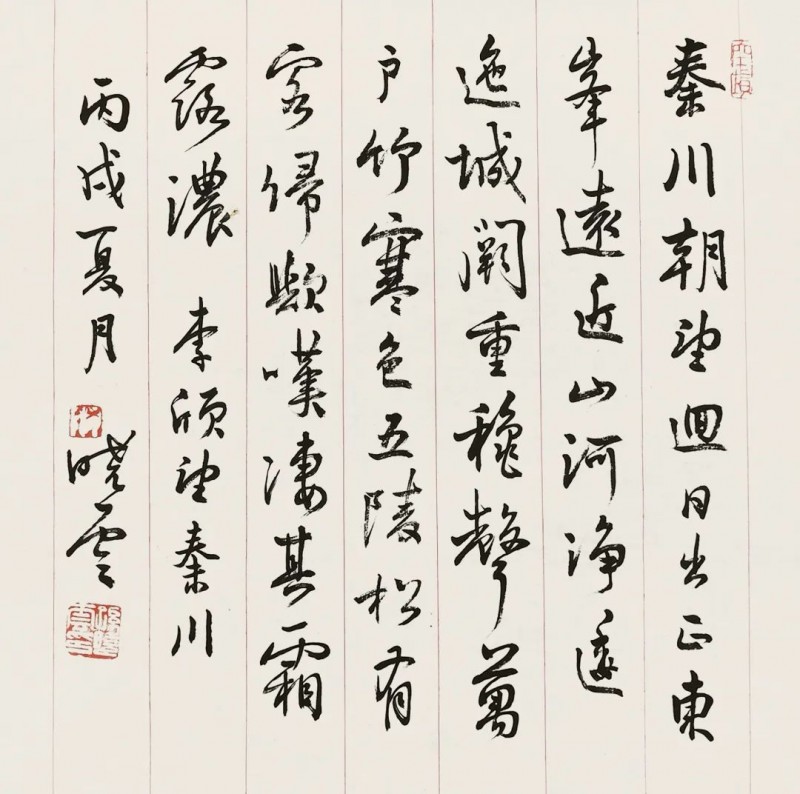 秦川朝望迴日出正東
峯遠近山河浄逶
迤城闕重穐聲萬
户竹寒色五陵松有
客歸歟嘆凄其霜
露濃 李頎望秦川
丙戌夏月 曉雲